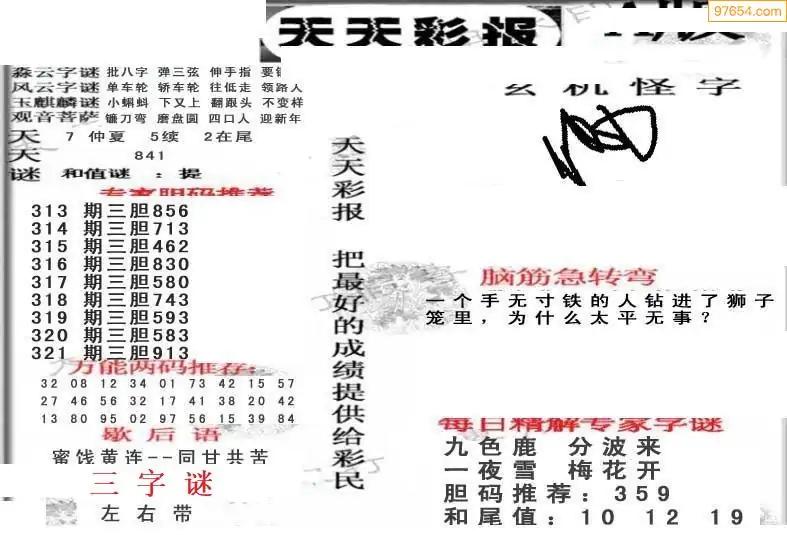 97654.com
天天彩报
森云字谜 批八字 弹三弦 伸手指
风云字谜 单车轮 轿车轮 往低走 领路人
玉麒麟谜 小蝌蚪 下又上 翻跟头 不变样
观音菩萨 镰刀弯 磨盘圆 四口人 迎新年
天 7 仲夏 5续 2在尾
天 841
谜 和值谜 : 提
专家胆码推荐
313 期三胆856
314 期三胆713
315 期三胆462
316 期三胆830
317 期三胆580
318 期三胆743
319 期三胆593
320 期三胆583
321 期三胆913
万能两码推荐:
32 08 12 34 01 73 42 15 57
27 46 56 32 17 41 38 20 42
13 80 95 02 97 56 15 39 84
歇后语
蜜饯黄连--同甘共苦
三字谜
左右带
天天彩报 把最好的成绩提供给彩民
玄机怪字
脑筋急转弯
一个手无寸铁的人钻进了狮子
笼里，为什么太平无事？
每日精解专家字谜
九色鹿 分波来
一夜雪 梅花开
胆码推荐: 359
和尾值: 10 12 19